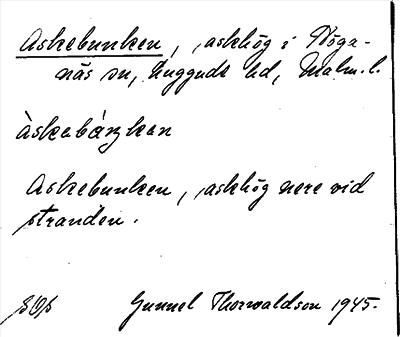 Askebunken, , askhög i Höga-
näs sn, Luggude hd, Malm. l.
àskabáŋkan
Askebunken, , askhög nere vid
stranden.
Gunnel Thorwaldson 1945.